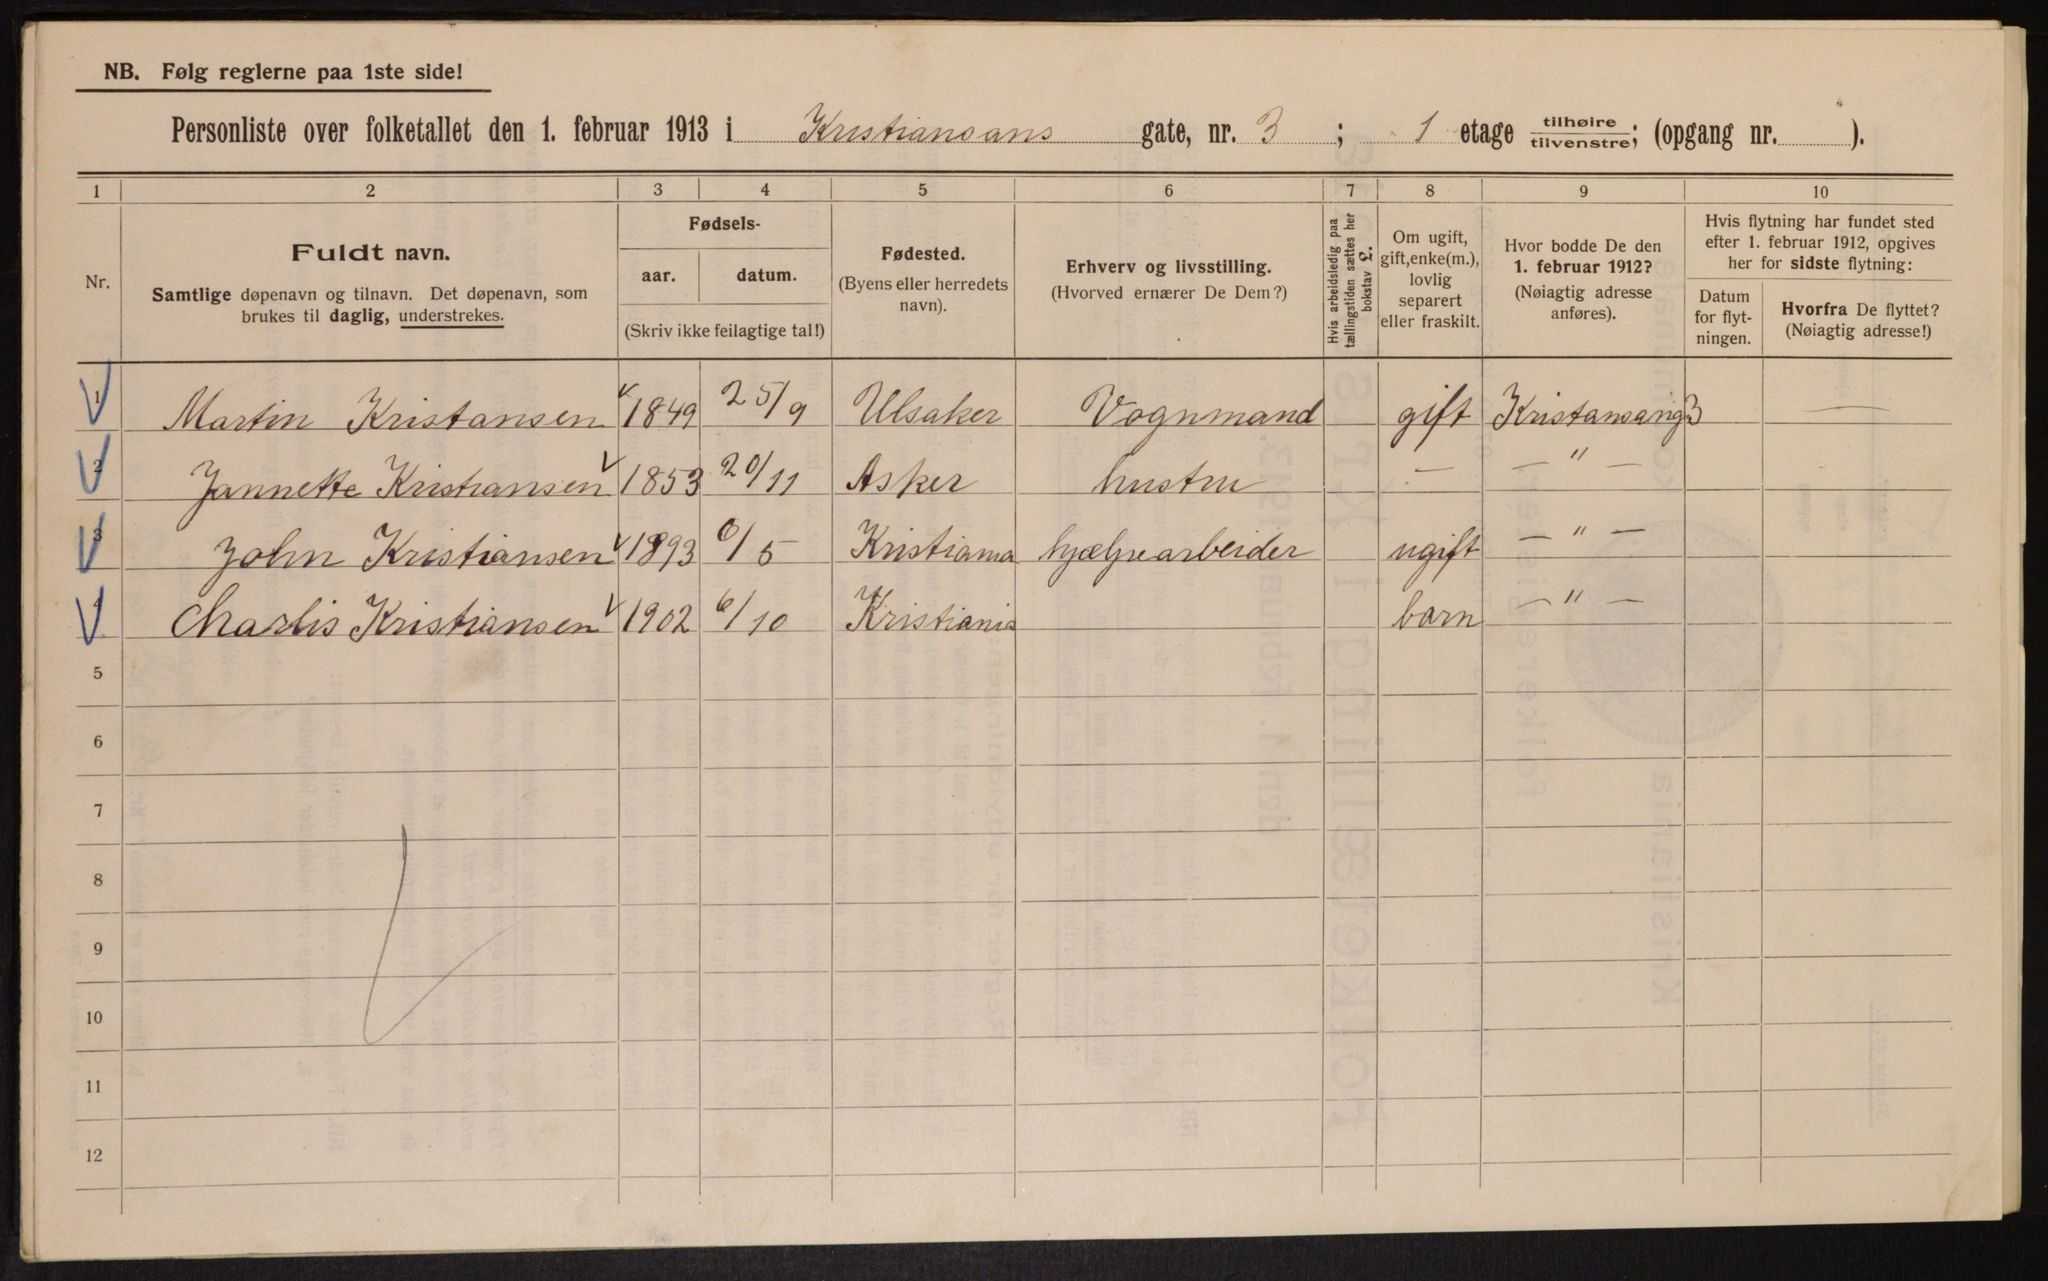 NB. Følg reglerne paa 1ste side!
Personliste over folketallet den 1. februar 1913 i Kristiansans gate, nr. 3 ; 1 etage tilhøire/tilvenstre; (opgang nr. " ).
1 2 3 4 5 6 7 8 9 10
Nr.
Fuldt navn.
Samtlige døpenavn og tilnavn. Det døpenavn, som
brukes til daglig, understrekes.
Fødsels-
aar. datum.
(Skriv ikke feilagtige tal!)
Fødested.
(Byens eller herredets
navn).
Erhverv og livsstilling.
(Hvorved ernærer De Dem?)
Hvis arbeidsledig paa
tællingstiden sættes her
bokstav L.
Om ugift,
gift, enke(m.),
lovlig
separert
eller fraskilt.
Hvor bodde De den
1. februar 1912?
(Nøiagtig adresse
anføres).
Hvis flytning har fundet sted
efter 1. februar 1912, opgives
her for sidste flytning:
Datum
for flyt-
ningen.
Hvorfra De flyttet?
(Nøiagtig adresse!)
1 Martin Kristansen 1849 25/9 Ulsaker Vognmand gift Kristansang 3 —
2 Jannette Kristiansen 1853 20/11 Asker hustru — — " —
3 John Kristiansen 1893 6/5 Kristiania hjælpearbeider ugift — " —
4 Charlis Kristiansen 1902 6/10 Kristiania barn — " —
5
6
7
8
9
10
11
12